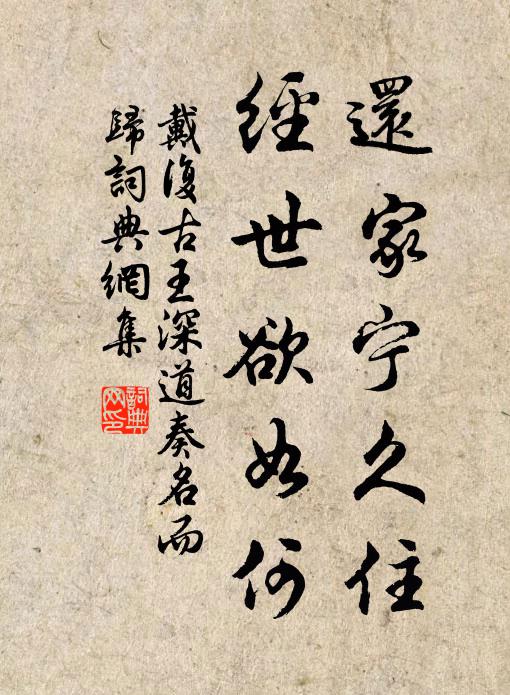 還家宁久住
經世欲如何
戴復古王深道奏名而
歸詞典網集
詞典
网印